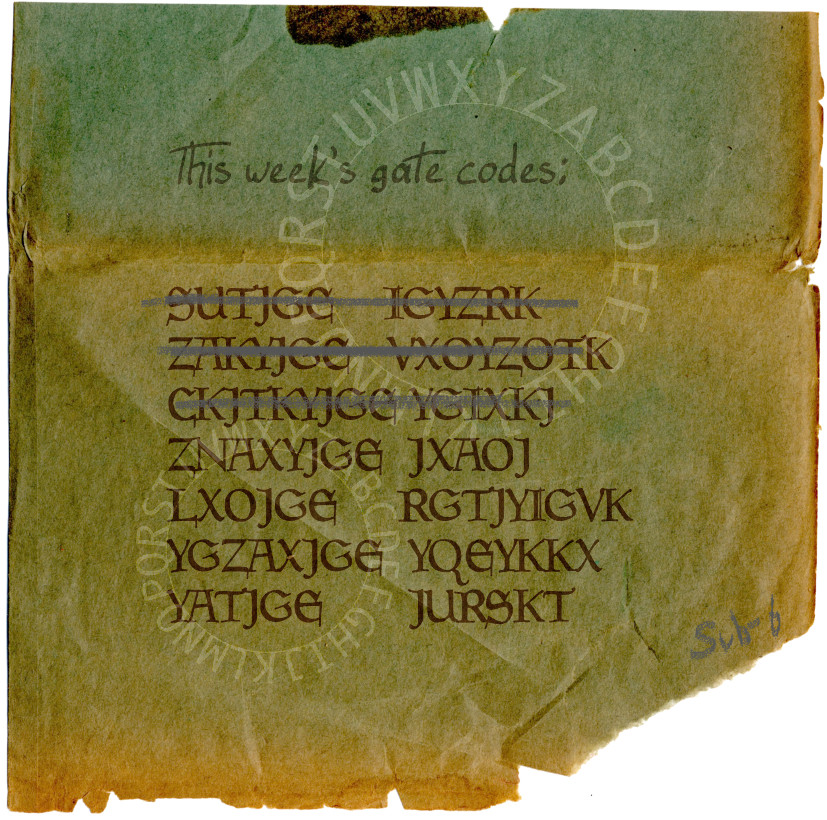 PQRSTUVWXYZABCDEFGH
This week's gate codes:
SUTJGE IGYZRK
ZAKYJGE VXOYZOTK
CKJTKYJGE YGIXKJ
ZNAXYJGE JXAOJ
LXOJGE RGTJYIGVK
YGZAXJGE YQEYKKX
YATJGE JURSKT
ABCDEFGHIJKLMNOPQRSTUVW
Sub-6